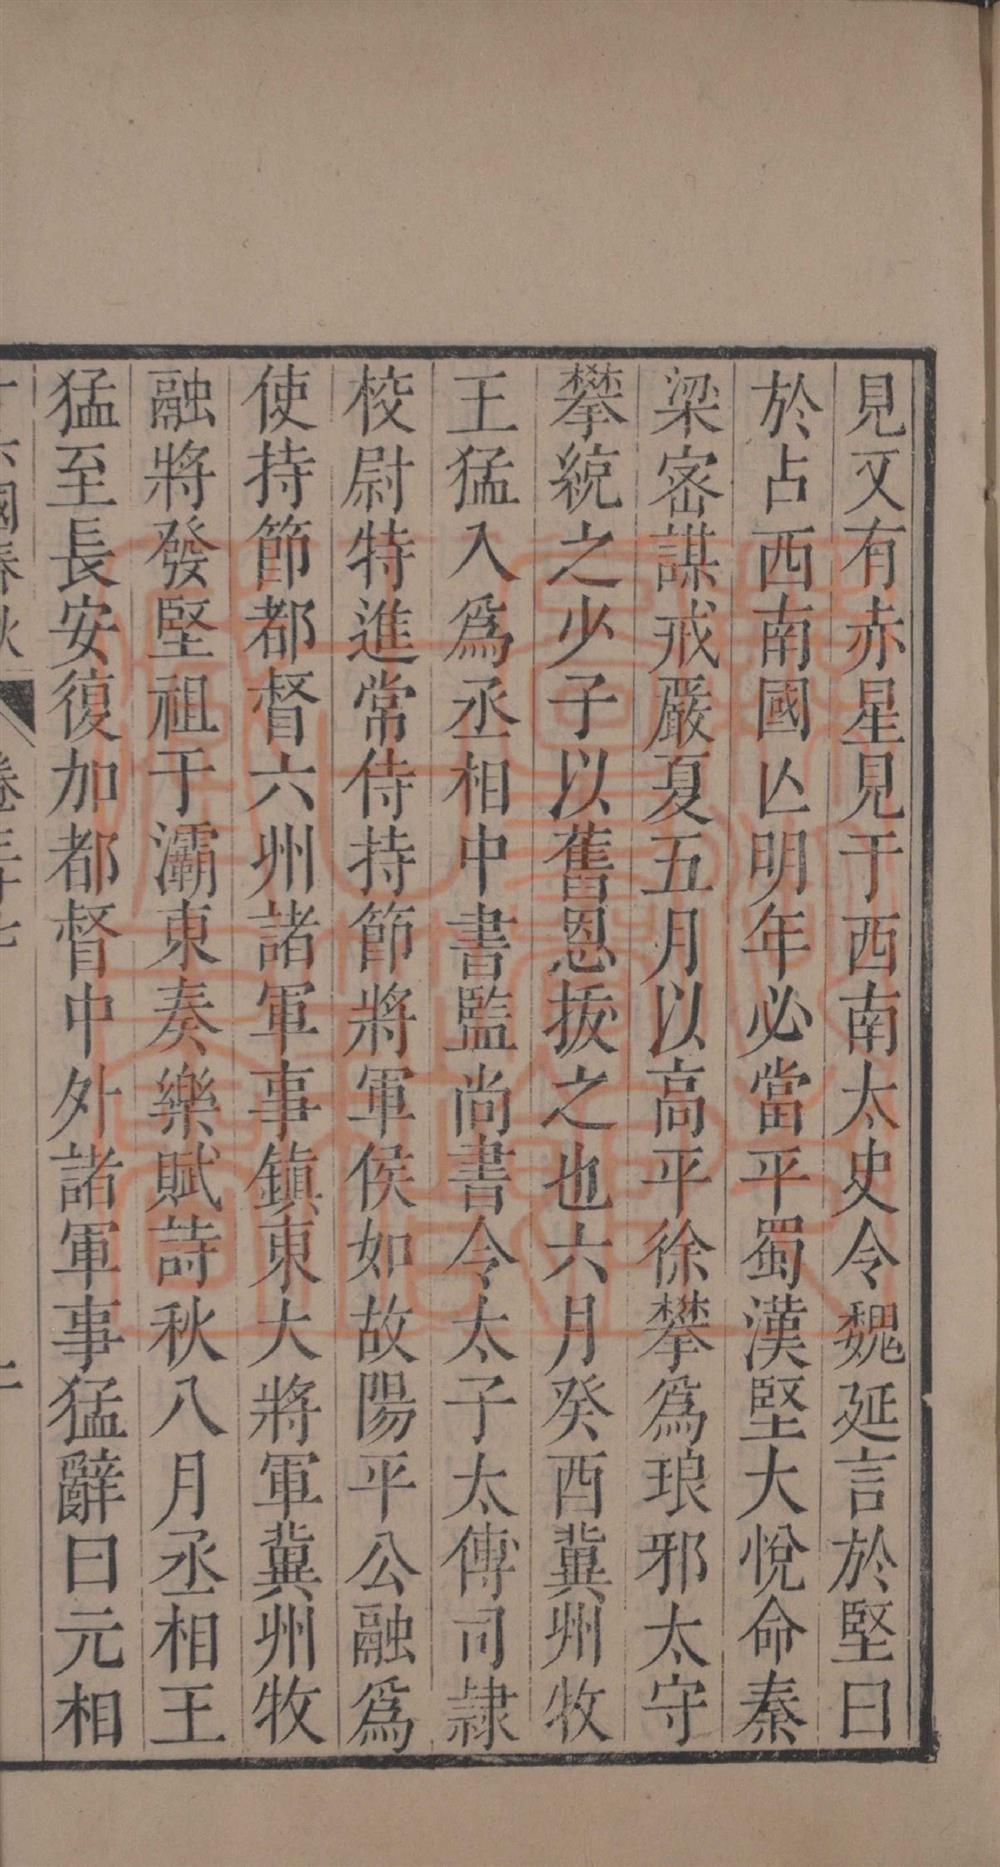 見又有赤星見于西南太史令魏延言於堅曰
於占西南國亾明年必當平蜀漢堅大悅命秦
梁密謀戒嚴夏五月以高平徐攀爲琅邪太守
攀統之少子以舊恩拔之也六月癸酉冀州牧
王猛入爲丞相中書監尚書令太子太傅司隷
校尉特進常侍持節將軍侯如故陽平公融爲
使持節都督六州諸軍事鎮東大將軍冀州牧
融將發堅祖于灞東奏樂賦詩秋八月丞相王
猛至長安復加都督中外諸軍事猛辭曰元相